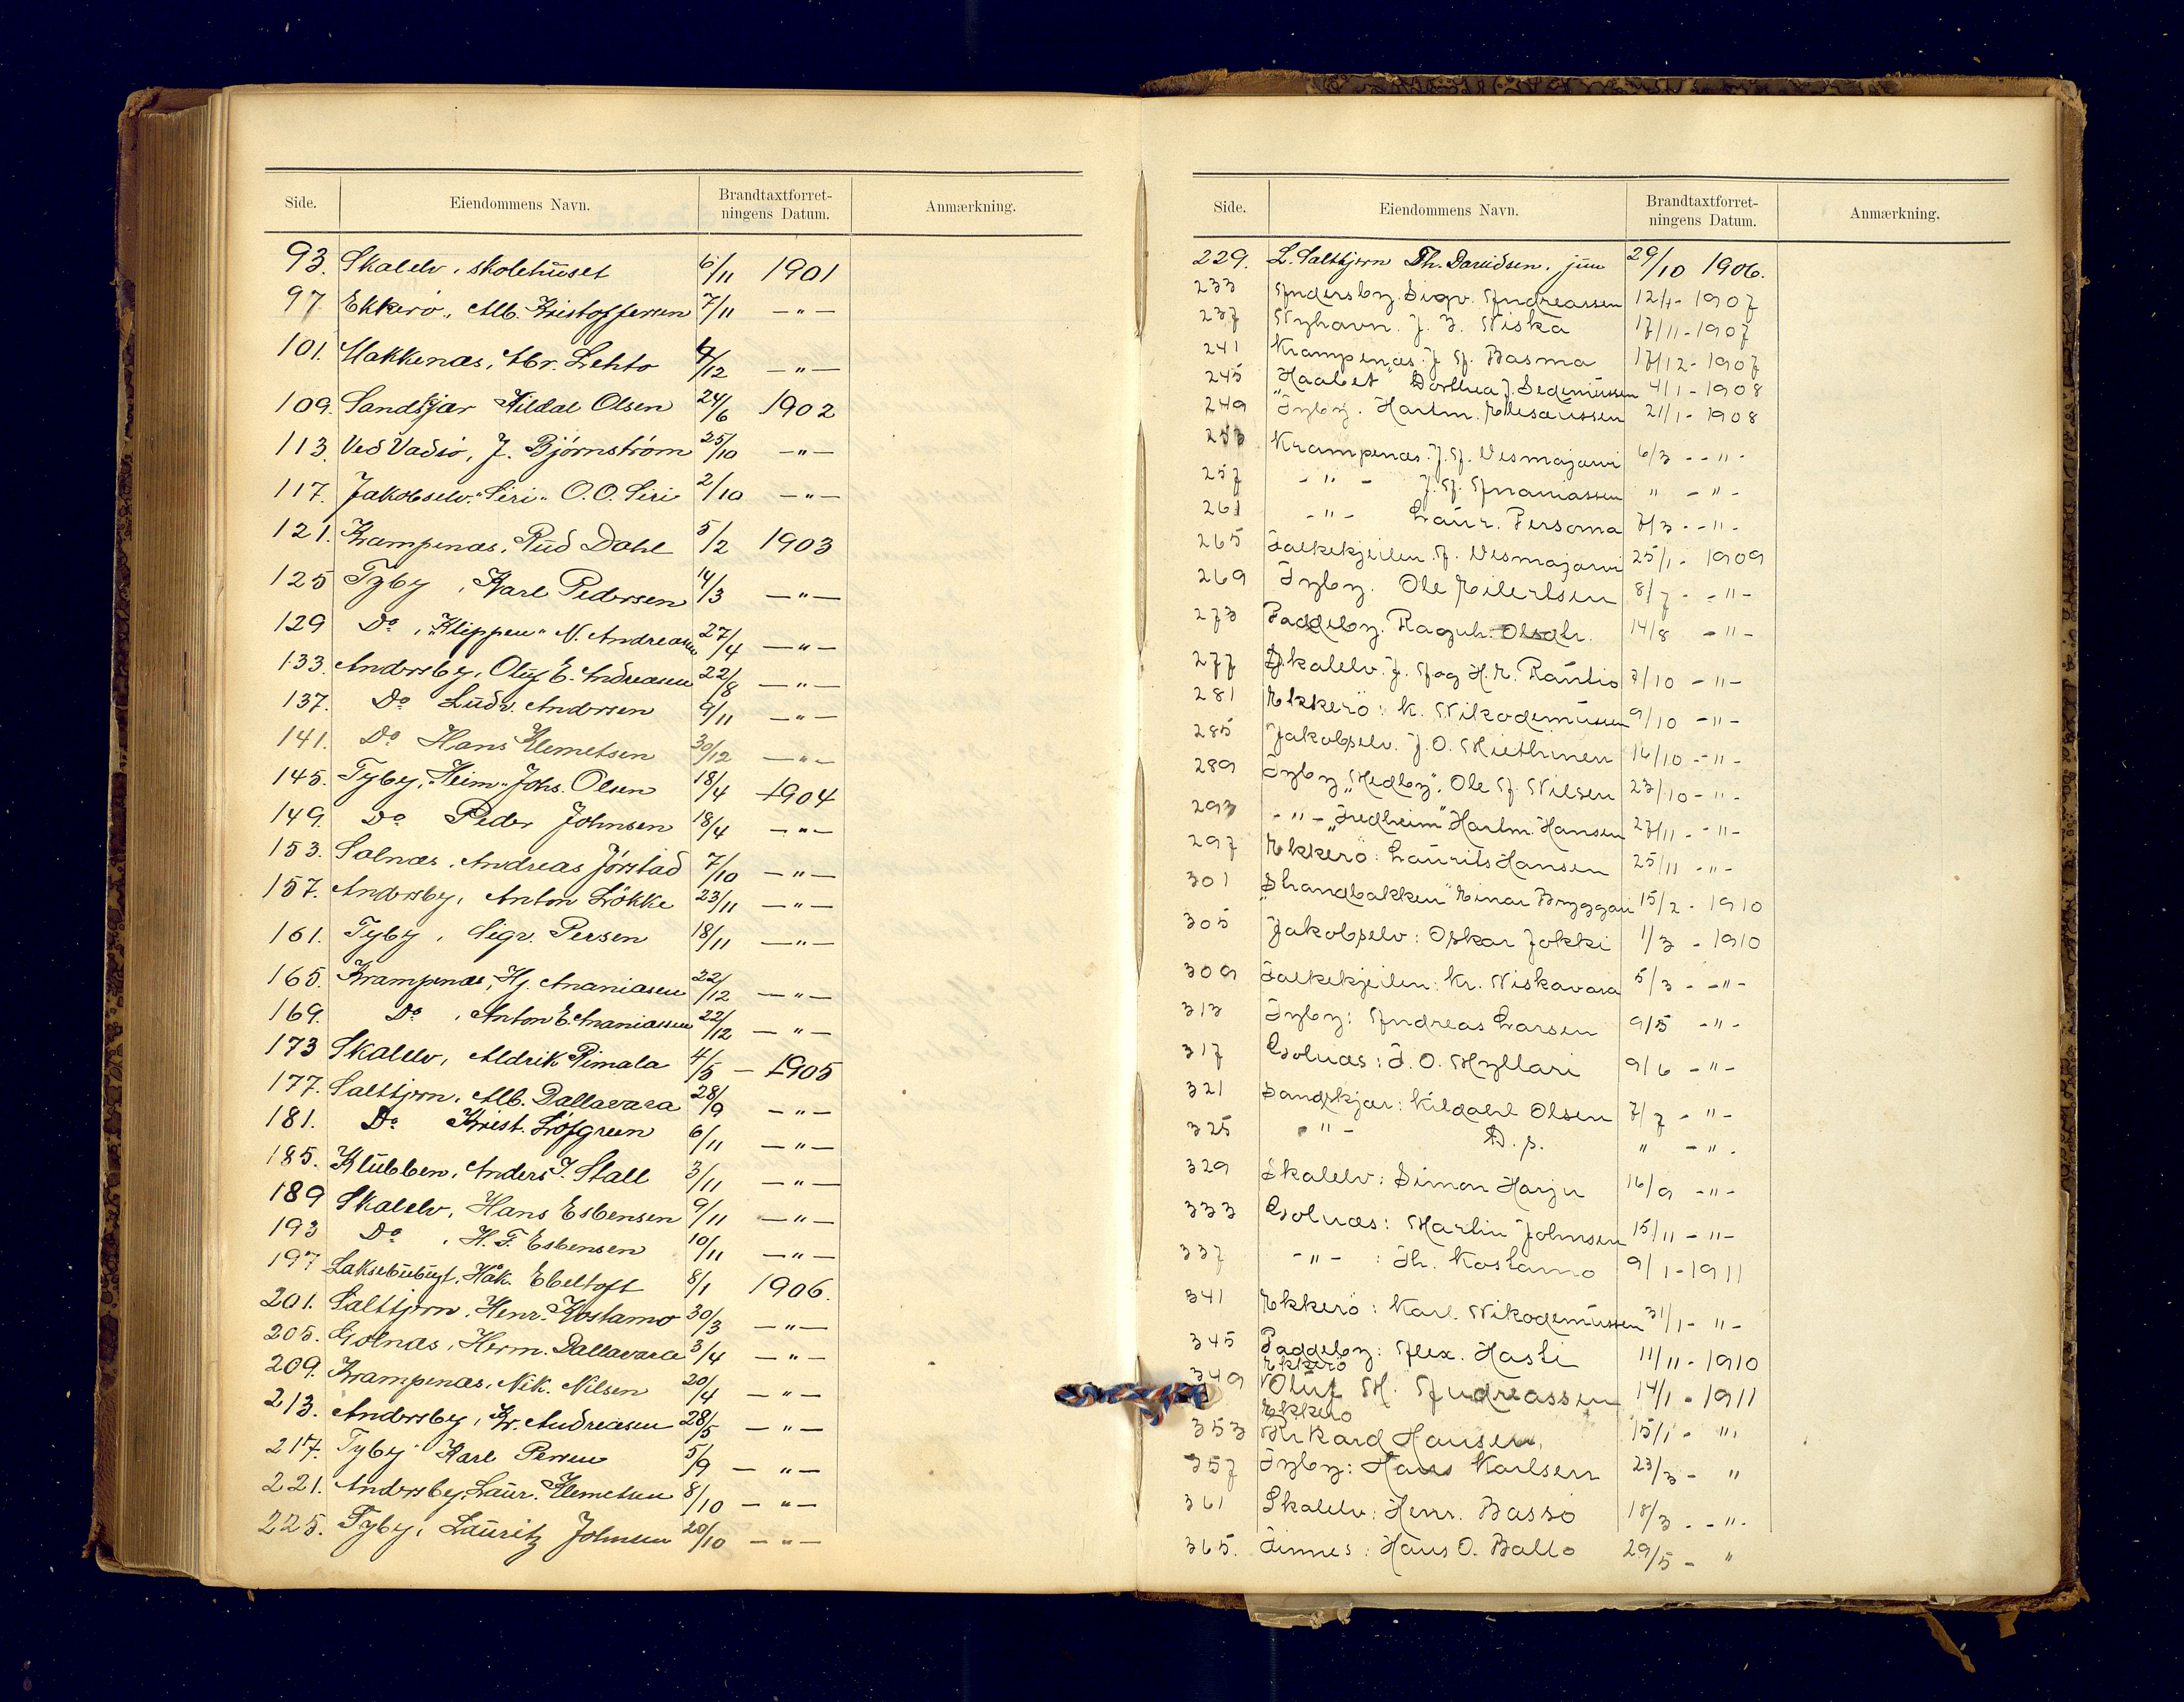 Side. Eiendommens Navn. Brandtaxtforret-
ningens Datum. Anmærkning.
93. Skalelv, skolehuset 6/11 1901
97. Ekkerö, Alb. Kristoffersen 7/11 — " —
101. Makkenæs, Abr. Lehto 4/12 — " —
109. Sandskjær Kildal Olsen 24/6 1902
113. Ved Vadsö, J. Björnström 25/10 — " —
117. Jakobselv. "Siri" O. O. Siri 2/10 — " —
121. Krampenæs, Rud Dahl 5/2 1903
125 Tyby, Karl Pedersen 14/3 — " —
129 Do, "Klippen" N. Andreasen 27/4 — " —
133. Andersby, Oluf E. Andreasen 22/8 — " —
137. Do Ludv. Andersen 9/11 — " —
141. Do Hans Klemetsen 30/12 — " —
145. Tyby, "Heim" Johs. Olsen 18/4 1904
149. Do Peder Johnsen 18/4 — " —
153. Salnæs, Andreas Jörstad 7/10 — " —
157. Andersby, Anton Lökke 23/11 — " —
161. Tyby, Sigv. Persen 18/11 — " —
165. Krampenæs, Hj. Ananiasen 22/12 — " —
169. Do, Anton E. Ananiassen 22/12 — " —
173 Skalelv, Aldrik Pimala 4/5 — 1905
177. Salttjern, Alb. Dallavara 28/9 — " —
181. Do Krist. Löfgren 6/11 — " —
185. Klubben, Anders J. Stall 3/11 — " —
189 Skalelv, Hans Esbensen 9/11 — " —
193 Do, H. F. Esbensen 10/11 — " —
197 Laksebübugt, Håk. Ebeltoft 8/1 1906.
201. Salttjern, Henr. Kostamo 30/3 — " —
205. Golnæs, Herm. Dallavara 3/4 — " —
209. Krampenæs, Nik. Nilsen 20/4 — " —
213. Andersby, Kr. Andreasen 28/5 — " —
217. Tyby Karl Persen 5/9 — " —
221. Andersby, Laur. Klemetsen 8/10 — " —
225. Tyby, Lauritz Johnsen 20/10 — " —
Side. Eiendommens Navn. Brandtaxtforret-
ningens Datum. Anmærkning.
229. L. Salttjern Th. Davidsen. jun 29/10 1906.
233 Andersby. Sigv. Andreassen 12/4 - 1907
237 Nyhavn. J. Z. Niska 17/11 - 1907
241 Krampenæs. J. A. Basma 17/12 - 1907
245 "Haabet" Dorthea J. Sedemussen 4/1 - 1908
249 Tyby. Hartm. Elesæussen 21/1 - 1908
253 Krampenæs. J. A. Vesmajarvi 6/3 - - " -
257 - " - J. A. Ananiassen " - " -
261 - " - Laur. Persoma 7/3 - - " -
265 Falkekjeilen. J. Vesmajarvi 25/1 - 1909
269 Tyby. Ole Eilertsen 8/7 - - " -
273 Paddeby. Ragnh. Olsdtr. 14/8 - " -
277 Skalelv. J. A og H. E. Rantio 7/10 - " -
281 Ekkerö: K. Nikodemussen 9/10 - " -
285 Jakobselv. J. O. Miethinen 16/10 - " -
289 Tyby "Hedby". Ole A. Nilsen 23/10 - " -
293 - " - "Fredheim" Hartm. Hansen 27/11 - - " -
297 Ekkerö: Laurits Hansen 25/11 - " -
301 "Strandbakken" Einar Bryggari 15/2 - 1910
305 Jakobselv: Oskar Jokki 1/3 - 1910
309 Falkekjeilen: Kr. Niskavara 5/3 - - " -
313 Tyby: Andreas Larsen 9/5 - " -
317 Golnæs: J. O. Myllari 9/6 - " -
321 Sandskjær: Kildahl Olsen 7/7 - " -
325 - " - D. s. " - " -
329 Skalelv: Simon Harju 16/9 - " -
333 Golnæs: Martin Johnsen 15/11 - " -
337 - " - : Th. Kostamo 9/1 - 1911
341 Ekkerö: Karl. Nikodemussen 31/1 - " -
345 Paddeby: Alex. Hasti 11/11 - 1910
Ekkerö
349 Oluf M. Andreassen 14/1 - 1911
Ekkerö
353 Rikard Hansen, 15/1 - "
357 Tyby: Hans Karlsen 23/3 - "
361 Skalelv: Henr. Basso 18/3 - - " -
365. Finnes: Hans O. Ballo 29/5 - "